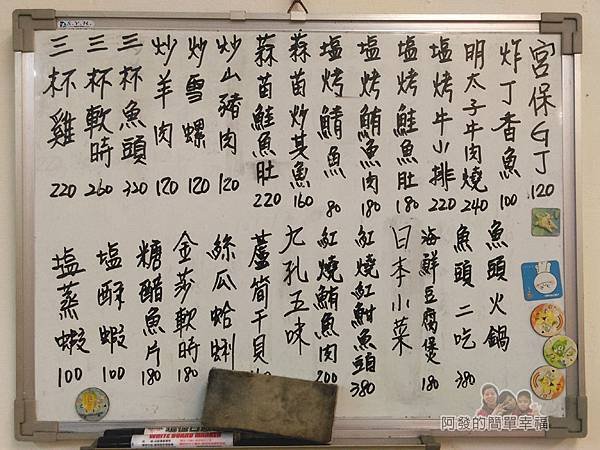 宮保G丁 120
炸丁香魚 100
明太子牛肉燒 240
塩烤牛小排 220
塩烤鮭魚肚 180
塩烤鮪魚肉 180
塩烤鯖魚 80
蒜苗炒其魚 160
蒜苗鮭魚肚 220
炒山豬肉 120
炒雪螺 120
炒羊肉 120
三杯魚頭 320
三杯軟時 260
三杯雞 220
魚頭火鍋
魚頭二吃 380
海鮮豆腐煲 180
日本小菜
紅燒紅魽魚頭 380
紅燒鮪魚肉 200
九孔五味
蘆筍干貝
絲瓜蛤蜊
金莎軟時 180
糖醋魚片 180
塩酥蝦 100
塩蒸蝦 100
WHITE BOARD MARKER
阿發的簡單幸福